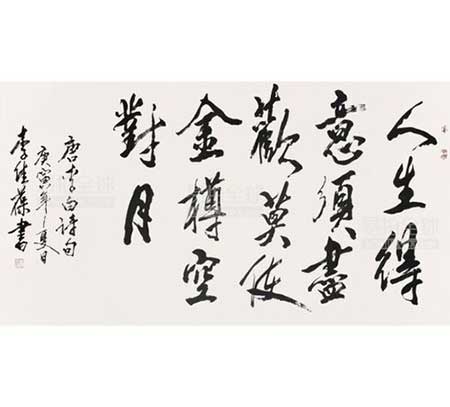 人生得
意須盡
歡莫使
金樽空
對月
唐李白詩句
庚寅年夏日
李佳葆書